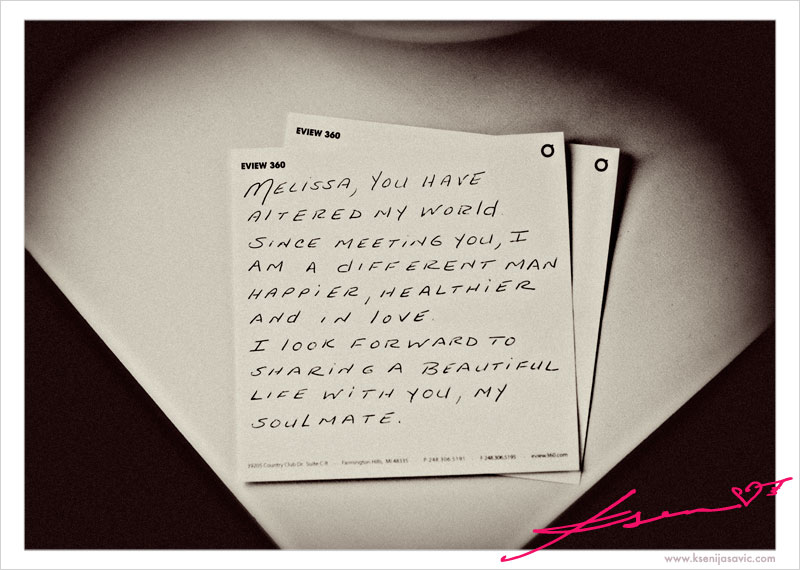 EVIEW 360
EVIEW 360
MELISSA, YOU HAVE
AlTERED MY WORld.
SiNCE MEETiNG YOU, I
AM A diFFERENT MAN
HAPPiER, HEALTHiER
ANd iN lOVE.
I lOOK FORWARD TO
SHARiNG A BEAUTiFUL
LiFE WiTH YOU, MY
SOUlMATE.
39205 Country Club Dr. Suite C 8 Farmington Hills, MI 48335 P 248.306.5191 F 248.306.5195 eview360.com
Ksen
www.ksenijasavic.com